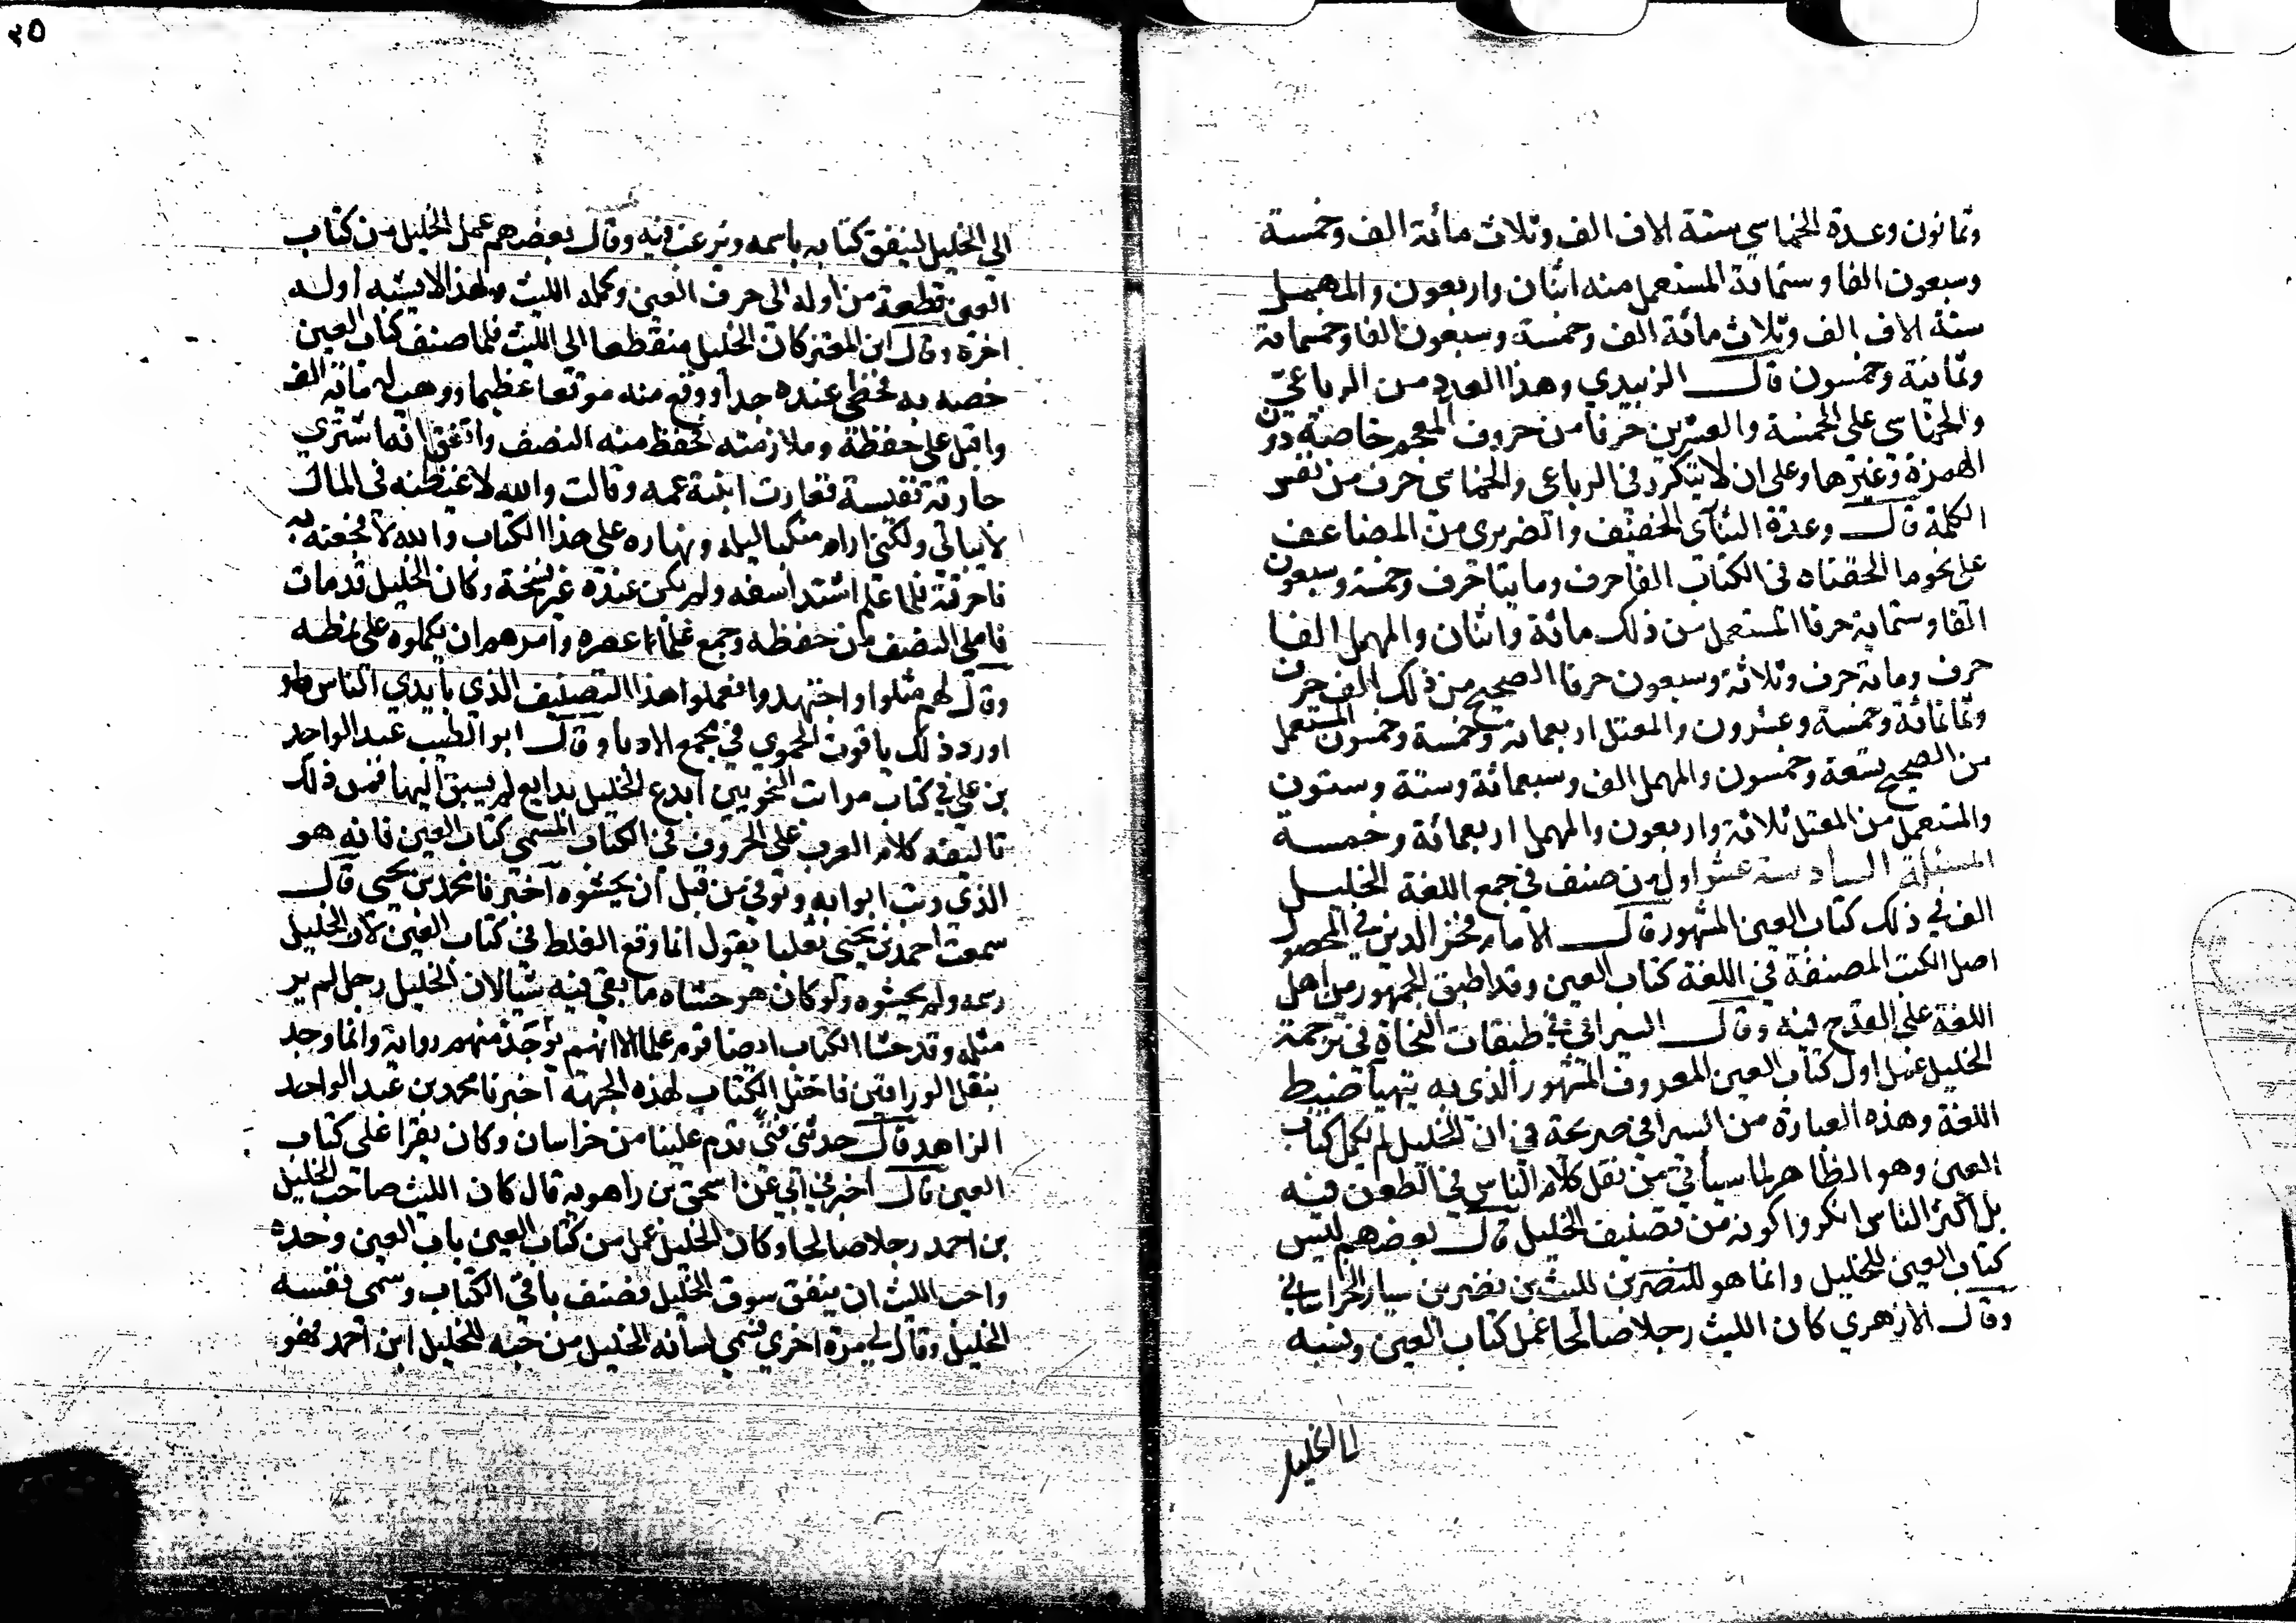 وثمانون وعدة الخماسي ستة الاف الف وثلاث مائة الف وخمسة
وسبعون الفا وستماية المستعمل منه اثنان واربعون والمهمل
ستة الاف الف وثلاث مائة الف وخمسة وسبعون الفا وخمسماية
وثمانية وخمسون قال الزبيدي وهذا العدد من الرباعي
والخماسي على الخمسة والعشرين حرفا من حروف المعجم خاصة دون
الهمزة وغيرها وعلى ان لا يتكرر في الرباعي والخماسي حرف من نفس
الكلمة قال وعدة الثنآى الخفيف والضربري من المضاعف
على نحو ما الحقناه في الكتاب الفا حرف ومايتا حرف وخمسة وسبعون
الفا وستماية حرفا المستعمل من ذلك مائة واثنان والمهمل الفا
حرف وماية حرف وثلاثة وسبعون حرفا الصحيح من ذلك الف حرف
وثمانمائة وخمسة وعشرون والمعتل اربعماية وخمسة وخمسون المستعمل
من الصحيح تسعة وخمسون والمهمل الف وسبعمائة وستة وستون
والمستعمل من المعتل ثلاثة واربعون والمهمل اربعمائة وخمسة
المسئلة السادسة عشر اول من صنف في جمع اللغة الخليل
الف في ذلك كتاب العين المشهور قال الامام فخر الدين في المحصول
اصل الكتب المصنفة في اللغة كتاب العين وقد اطبق الجمهور من اهل
اللغة على القدح فيه وقال السيرافي في طبقات النحاة في ترجمة
الخليل عمل اول كتاب العين المعروف المشهور الذي به يتهيأ ضبط
اللغة وهذه العبارة من السيرافي صريحة في ان الخليل لم يكمل كتاب
العين وهو الظاهر لما سيأتي من نقل كلام الناس في الطعن فيه
بل اكثر الناس انكروا كونه من تصنيف الخليل قال بعضهم ليس
كتاب العين للخليل وانما هو للنصر بن لليث بن نصر بن سيار الخراساني
وقال الازهري كان الليث رجلا صالحا عمل كتاب العين ونسبه
الى الخليل
٢٥
الى الخليل لينفق كتابه باسمه ويرغب فيه وقال بعضهم عمل الخليل من كتاب
العين قطعة من اوله الى حرف العين وكمله الليث ولهذا لا يشبه اوله
اخره وقال ابن المعتز كان الخليل منقطعا الى الليث فلما صنف كتاب العين
خصه به فحظى عنده جدا ووقع منه موقعا عظيما ووهب له ماية الف
واقبل على حفظه وملازمته فحفظ منه النصف واتفق انه اشترى
جارية نفيسة فغارت ابنة عمه وقالت والله لاغيظنه في المال
لا يبالى ولكني اراه منكبا ليله ونهاره على هذا الكتاب والله لا فجعنه به
فاحرقته فلما علم اشتد اسفه ولم يكن عنده غير نسخة وكان الخليل قد مات
فاملى النصف من حفظه وجمع علماء عصره وأمرهم ان يكملوه على نمطه
وقال لهم مثلوا واجتهدوا فعملوا هذا التصنيف الذي بأيدي الناس
اورد ذلك ياقوت الحموي في مجمع الادباء وقال ابو الطيب عبد الواحد
بن علي في كتاب مراتب النحويين ابدع الخليل بدايع لم يسبق اليها فمن ذلك
تاليفه كلام العرب على الحروف في الكتاب المسمى كتاب العين فانه هو
الذي رتب ابوابه وتوفي من قبل ان يحشوه آخبرنا محمد بن يحيى قال
سمعت احمد بن يحيى ثعلبا يقول انما وقع الغلط في كتاب العين لأن الخليل
رسمه ولم يحشوه ولو كان هو حشاه ما بقي فيه شيا لان الخليل رجل لم ير
مثله وقد حشا الكتاب ايضا قوم علما الا انهم توخذ منهم رواية وانما وجد
بنقل الوراقين فاختل الكتاب لهذه الجهة آخبرنا محمد بن عبد الواحد
الزاهد قال حدثني فتى قدم علينا من خراسان وكان يقرا على كتاب
العين قال اخبرني ابي عن اسحق بن راهويه قال كان الليث صاحب الخليل
بن احمد رجلا صالحا وكان الخليل عمل من كتاب العين باب العين وحده
واحب الليث ان ينفق سوق الخليل فصنف باقي الكتاب وسمى نفسه
الخليل وقال لي مرة اخرى فسمى لسانه الخليل من حبه للخليل ابن احمد فهو